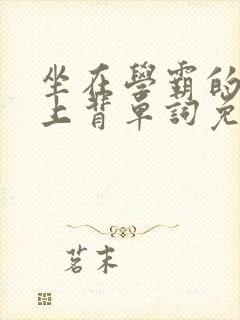 坐在學霸的
上背單詞免
茗末